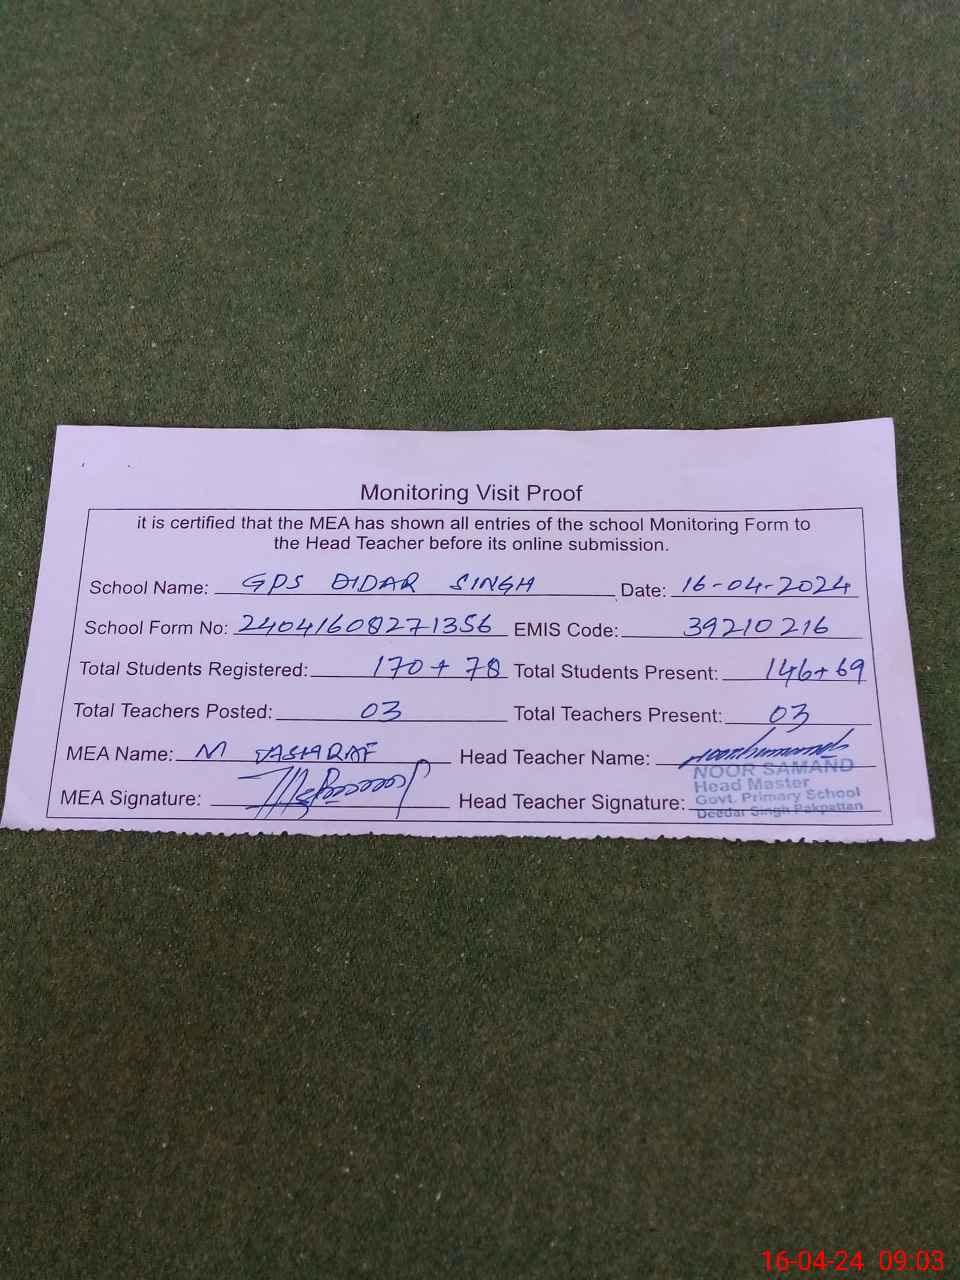 Monitoring Visit Proof
it is certified that the MEA has shown all entries of the school Monitoring Form to
the Head Teacher before its online submission.
School Name: GPS DIDAR SINGH Date: 16-04-2024
School Form No: 24041608271356 EMIS Code: 39210216
Total Students Registered: 170 + 78 Total Students Present: 146+69
Total Teachers Posted: 03 Total Teachers Present: 03
MEA Name: M Head Teacher Name:
NOOR SAMAND
Head Master
MEA Signature: Head Teacher Signature: Govt. Primary School
Deedar Singh Pakpattan
16-04-24 09:03